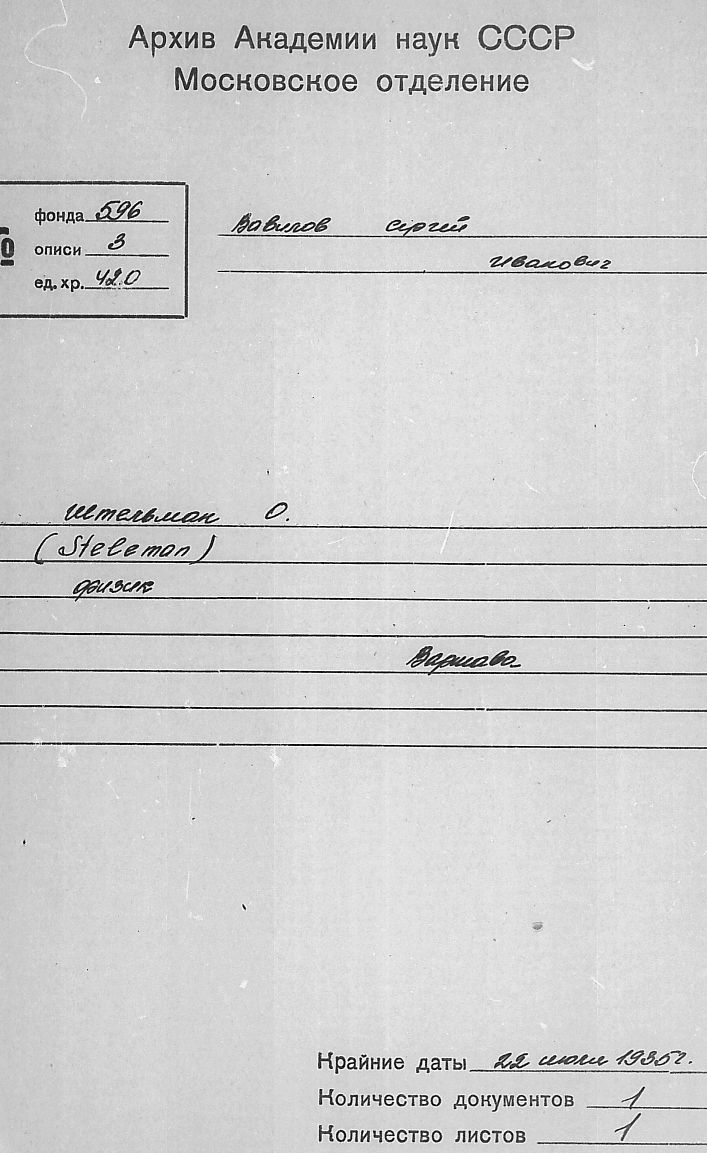 Архив Академии наук СССР
Московское отделение
фонда 596
описи 3
ед. хр. 420
Вавилов Сергей
Иванович
Штельман О.
(Steleman)
физик
Варшава
Крайние даты 22 июля 1935 г.
Количество документов 1
Количество листов 1